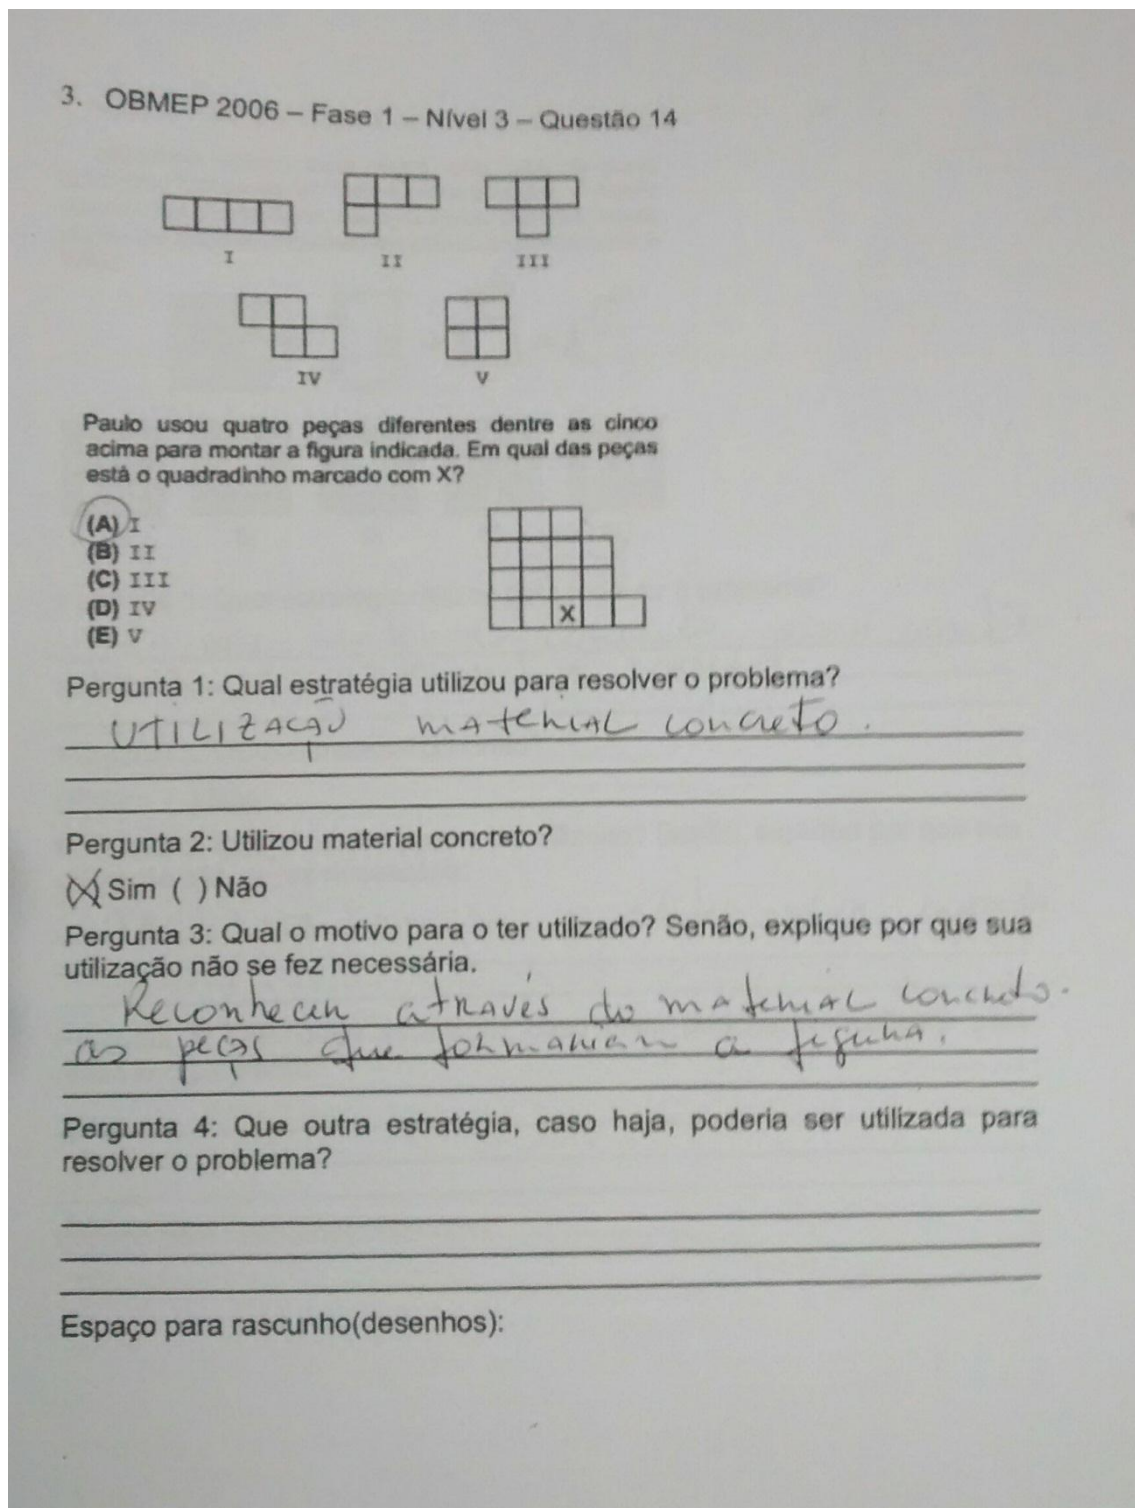 3. OBMEP 2006 – Fase 1 – Nível 3 – Questão 14
I
II
III
IV
V
Paulo usou quatro peças diferentes dentre as cinco
acima para montar a figura indicada. Em qual das peças
está o quadradinho marcado com X?
(A) I
(B) II
(C) III
(D) IV
(E) V
X
Pergunta 1: Qual estratégia utilizou para resolver o problema?
UTILIZAÇÃO material concreto.
Pergunta 2: Utilizou material concreto?
(X) Sim ( ) Não
Pergunta 3: Qual o motivo para o ter utilizado? Senão, explique por que sua
utilização não se fez necessária.
Reconhecer através do material concreto.
as peças que formariam a figura.
Pergunta 4: Que outra estratégia, caso haja, poderia ser utilizada para
resolver o problema?
Espaço para rascunho(desenhos):